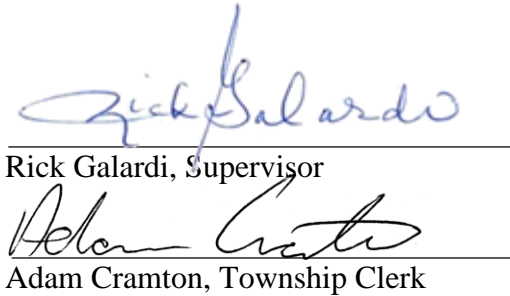 Rick Galardo
Rick Galardi, Supervisor
Adam Cramton, Township Clerk